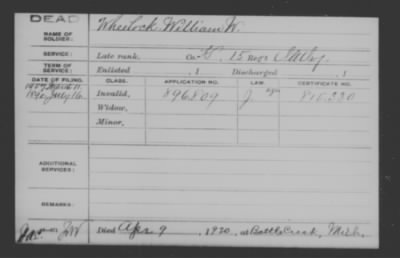 DEAD
NAME OF SOLDIER: Wheelock William W.
SERVICE: Late rank, Co. G, 15 Reg't
TERM OF SERVICE: Enlisted , 1 Discharged , 1
DATE OF FILING. CLASS. APPLICATION NO. LAW. CERTIFICATE NO.
1890 July 16 Invalid, 896809 J. 815,220
Widow,
Minor,
ADDITIONAL SERVICES:
REMARKS:
Died Apr 9, 1920, at Battle Creek, Mich.